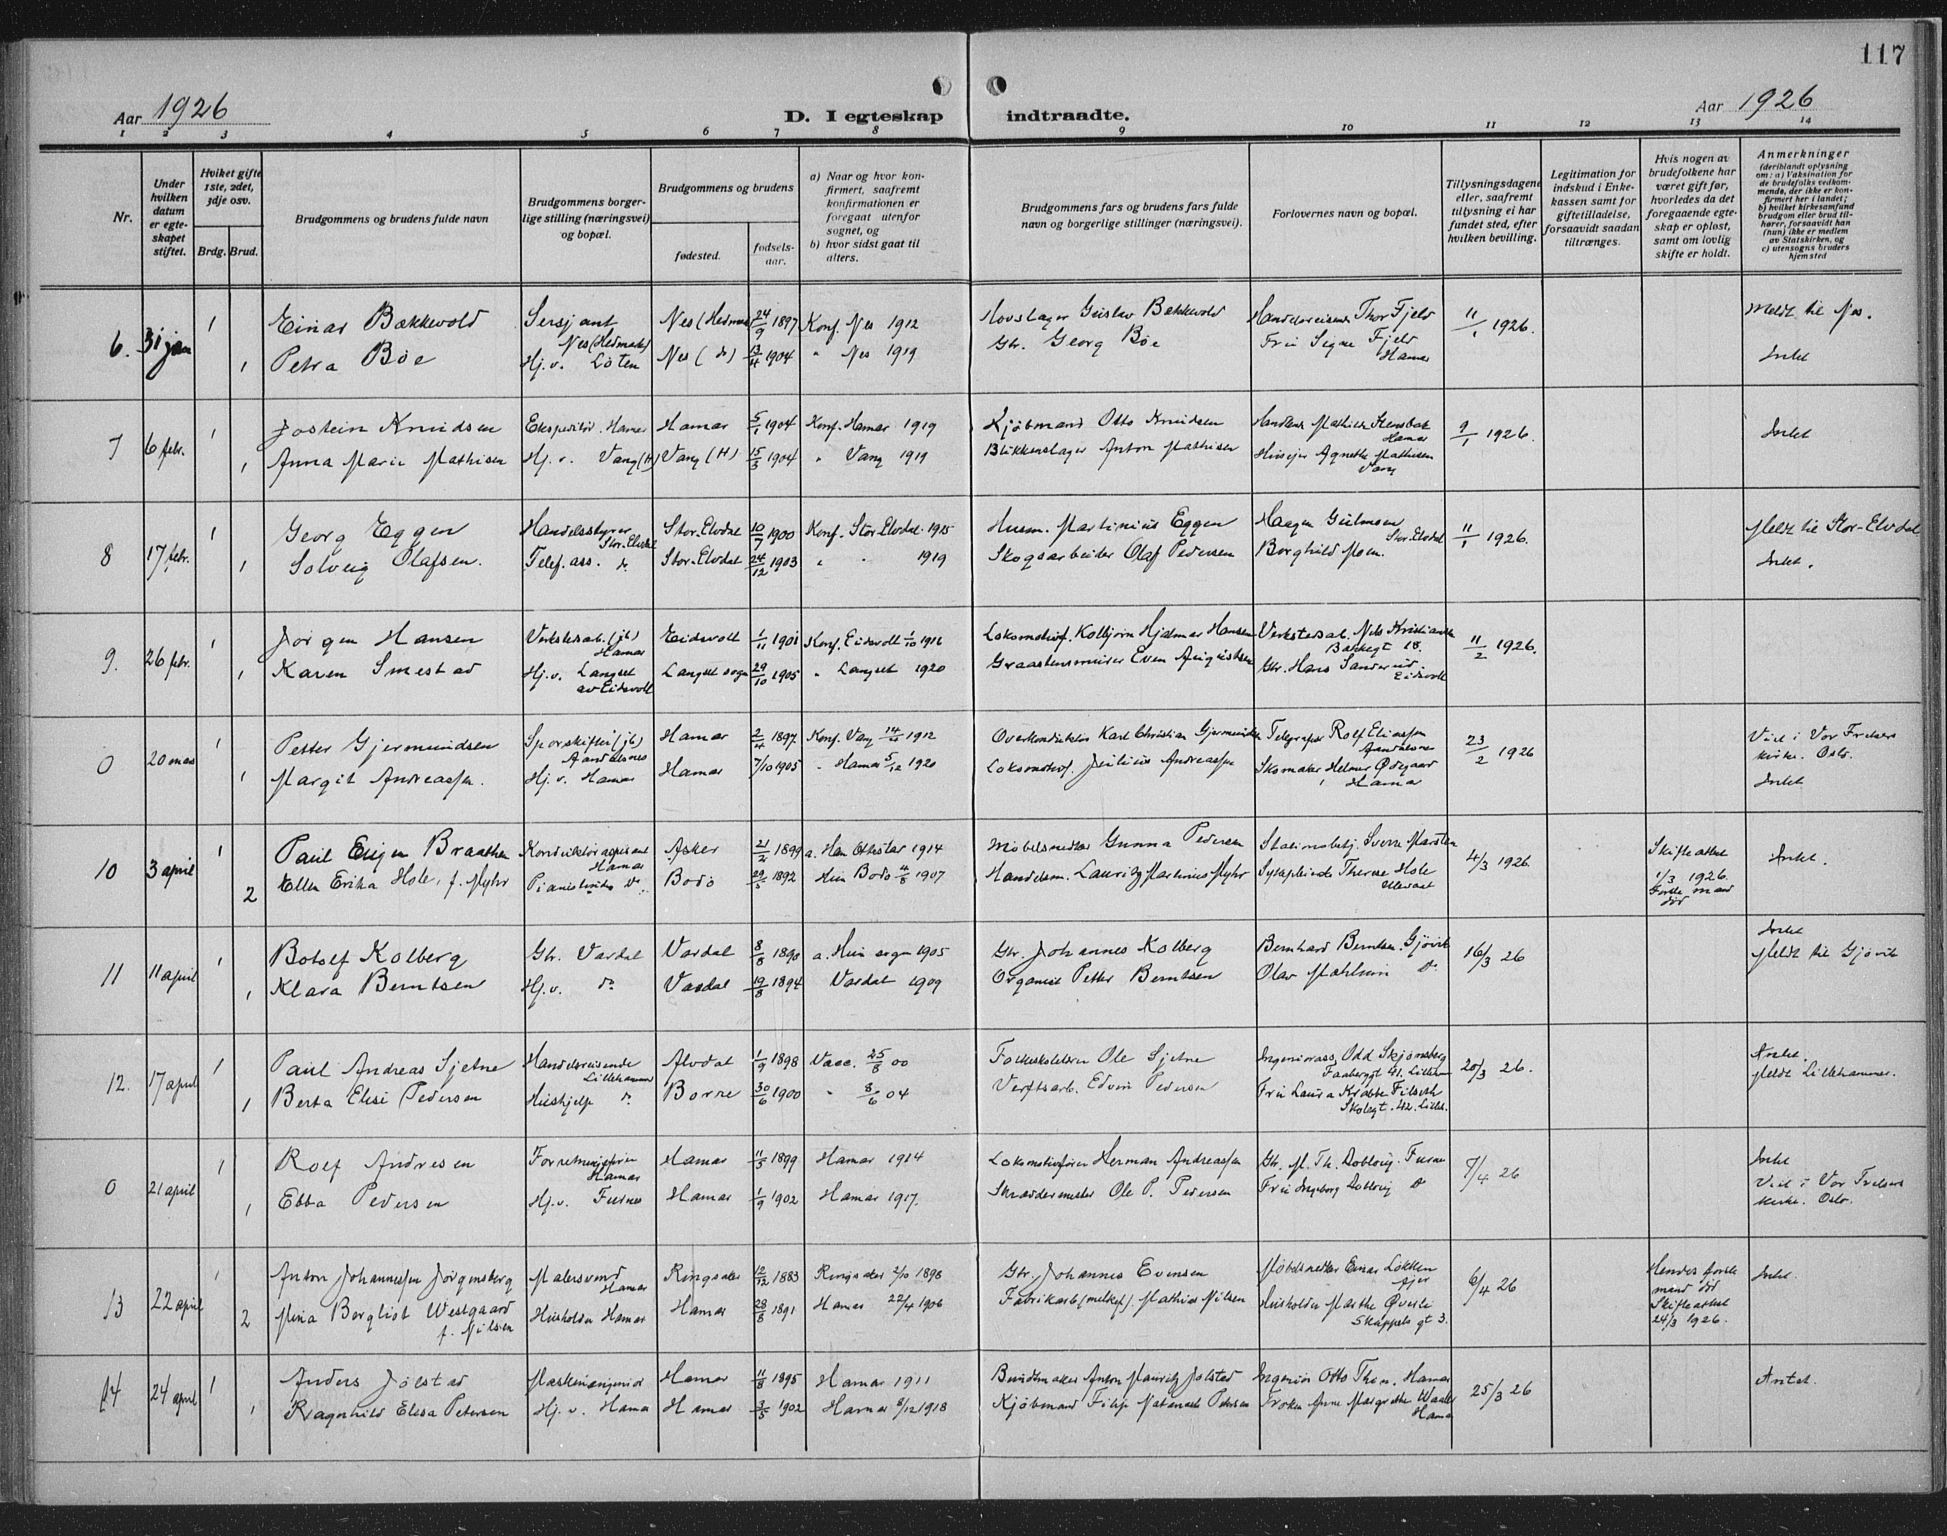 117
Aar 1926
D. I egteskap indtraadte.
Aar 1926
1 2 3 4 5 6 7 8 9 10 11 12 13 14
Nr.
Under hvilken datum er egteskapet stiftet.
Hviket gifte 1ste, 2det, 3dje osv.
Brdg. Brud.
Brudgommens og brudens fulde navn
Brudgommens borgerlige stilling (næringsvei) og bopæl.
Brudgommens og brudens
fødested.
fødselsaar.
a) Naar og hvor konfirmert, saafremt konfirmationen er foregaat utenfor sognet, og
b) hvor sidst gaat til alters.
Brudgommens fars og brudens fars fulde navn og borgerlige stillinger (næringsvei).
Forlovernes navn og bopæl.
Tillysningsdagene eller, saafremt tillysning ei har fundet sted, efter hvilken bevilling.
Legitimation for indskud i Enkekassen samt for giftetilladelse, forsaavidt saadan tiltrænges.
Hvis nogen av brudefolkene har været gift før, hvorledes da det foregaaende egteskap er opløst, samt om lovlig skifte er holdt.
Anmerkninger
(deriblandt oplysning om: a) Vaksination for de brudefolks vedkommende, der ikke er konfirmert her i landet; b) hvilket kirkesamfund brudgom eller brud tilhører, forsaavidt han (hun) ikke er medlem av Statskirken, og c) utensogns bruders hjemsted
6. 31 jan 1 Einar Bækkevold Sersjant Nes (Hedmark) Nes (Hedmark) 24/9 1897 Konf. Nes 1912 Hovslager Gustav Bækkevold Handelsreisende Thor Fjeld 11/1 1926. Meldt til Nes.
1 Petra Bøe Hj.v. Løten Nes (do) 13/4 1904 " Nes 1919 Gbr. Georg Bøe Fru Signe Fjeld Hamar Intet
7 6 febr. 1 Jostein Knudsen Ekspeditør Hamar Hamar 5/1 1904 Konf. Hamar 1919 Kjøbmand Otto Knudsen Hamar 9/1 1926. Intet
1 Anna Marie Mathisen Hj.v. Vang (H) Vang (H) 15/3 1904 " Vang 1919 Blikkenslager Anton Mathisen Agnethe Mathisen Vang
8 17 febr. 1 Georg Eggen Handelsstyrer Stor-Elvdal Stor-Elvdal 10/7 1900 Konf. Stor-Elvdal 1915 Husm. Martinius Eggen Haagen Gulmoen Stor-Elvdal 11/1 1926. Meldt til Stor-Elvdal
1 Solveig Olafsen. Telef.ass. do Stor-Elvdal 24/12 1903 " 1919 Skogsarbeider Olaf Pedersen Borghild Moen. Intet.
9. 26 febr. 1 Jørgen Hansen Verkstedarb. (jb) Hamar Eidsvoll 1/11 1901 Konf. Eidsvoll 1/10 1916 Lokomotivf. Kolbjørn Hjalmar Hansen Verkstedarb. Nils Kristiansen Bakkegt 18. 11/2 1926.
1 Karen Smestad Hj.v. Langset av Eidsvoll Langset sogn 29/10 1905 " Langset 1920 Graastensmurer Even Augustsen Gbr. Hans Sanderud Eidsvoll
0 20 mars 1 Petter Gjermundsen Sporskifter (jb) Aandalsnes Hamar 2/4 1897. Konf. Vang 1912 Overkonduktør Karl Christian Gjermundsen Telegrafist Rolf Eliassen Aandalsnes 23/2 1926 Viet i Vor Frelsers kirke. Oslo.
1 Margit Andreassen. Hj.v. Hamar Hamar 7/10 1905 " Hamar 5/12 1920 Lokomotivf. Julius Andreassen Skomaker Helmer Ødegaard Hamar Intet
10 3 april 1 Paul Eugen Braathen Konduktøraspirant Hamar Asker 21/2 1899 a. Han Ottestad 1914 Møbelsnedker Gunnar Pedersen Stationsbetj. Sverre Marsten 4/3 1926 Skifteattest 1/3 1926. Første mand død Intet.
2 Ellen Erika Hole, f. Myhr Pianistinde do Bodø 29/5 1892 Hun Bodø 4/8 1907 Handelsm. Lauritz Martinus Myhr Therese Hole
11 11 april 1 Botolf Kolberg Gbr. Vardal Vardal 8/8 1890 a. Hun sogn 1905 Gbr. Johannes Kolberg Bernhard Berntsen. Gjøvik 16/3 26 Intet Meldt til Gjøvik
1 Klara Berntsen Hj.v. do Vardal 19/8 1894 Vardal 1909 Organist Petter Berntsen Olav Mæhlum do
12. 17 april 1 Paul Andreas Sjetne Handelsreisende Lillehammer Alvdal 1/9 1898 Vacc. 25/8 00 Folkeskolelærer Ole Sjetne Ingeniørass. Odd Skjønsberg Faaberggt 41. Lilleham 20/3 26. Intet. Meldt Lillehammer.
1 Berta Elise Pedersen Hushjelp do Borre 30/6 1900 " 8/6 04 Verftsarb. Edvin Pedersen Fru Laura Krabbe Filseth Skolegt. 42. Lilleh.
0 21 april 1 Rolf Andresen Forretningsfører Hamar Hamar 11/5 1899 Hamar 1914 Lokomotivfører Herman Andreassen Gbr. M. Th. Dobloug. Furnes 7/4 26 Intet
1 Ebba Pedersen Hj.v. Furnes Hamar 1/9 1902 Hamar 1917. Skræddermester Ole P. Pedersen Fru Ingeborg Dobloug do Viet i Vor Frelsers kirke. Oslo.
13 22 april 1 Anton Johannessen Jørgensberg Malersvend Hamar Ringsaker 12/12 1883 Ringsaker 2/10 1898 Gbr. Johannes Evensen Møbelsnedker Einar Løkken 6/4 26 Hendes første mand død Skifteattest 24/3 1926. Intet.
2 Mina Bergliot Westgaard f. Nilsen Husholder Hamar Hamar 28/8 1891 Hamar 22/4 1906 Fabrikarb. (melkef). Mathias Nilsen Husholder Marthe Øverli Skappels gt 3.
14 24 april 1 Anders Jølstad Maskiningeniør Hamar 11/8 1895 Hamar 1911 Buntmaker Anton Mauritz Jølstad Ingeniør Otto Thon. Hamar 25/3 26 Intet.
1 Ragnhild Elisa Petersen Hj.v. Hamar Hamar 3/5 1902 Hamar 8/12 1918 Kjøbmand Filip Natanael Petersen Frøken Anne Margrethe Hamar